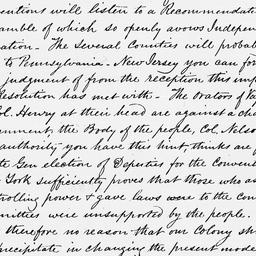 entions will listen to a Recommendati
amble of which so openly avows Indepen
ation - The several Counties will probab
to Pennsylvania - New Jersey you can for
judgment of from the reception this imp
Resolution has met with - The Orators of
Col. Henry at their head are against a cha
ernment, the Body of the people, Col. Nelso
authority you have this hint, thinks are
te Gen election of Deputies for the Convent
York sufficiently proves that those who as
trolling power & gave laws were to the con
mittees were unsupported by the people.
therefore no reason that our Colony sh
precipitate in changing the present mode